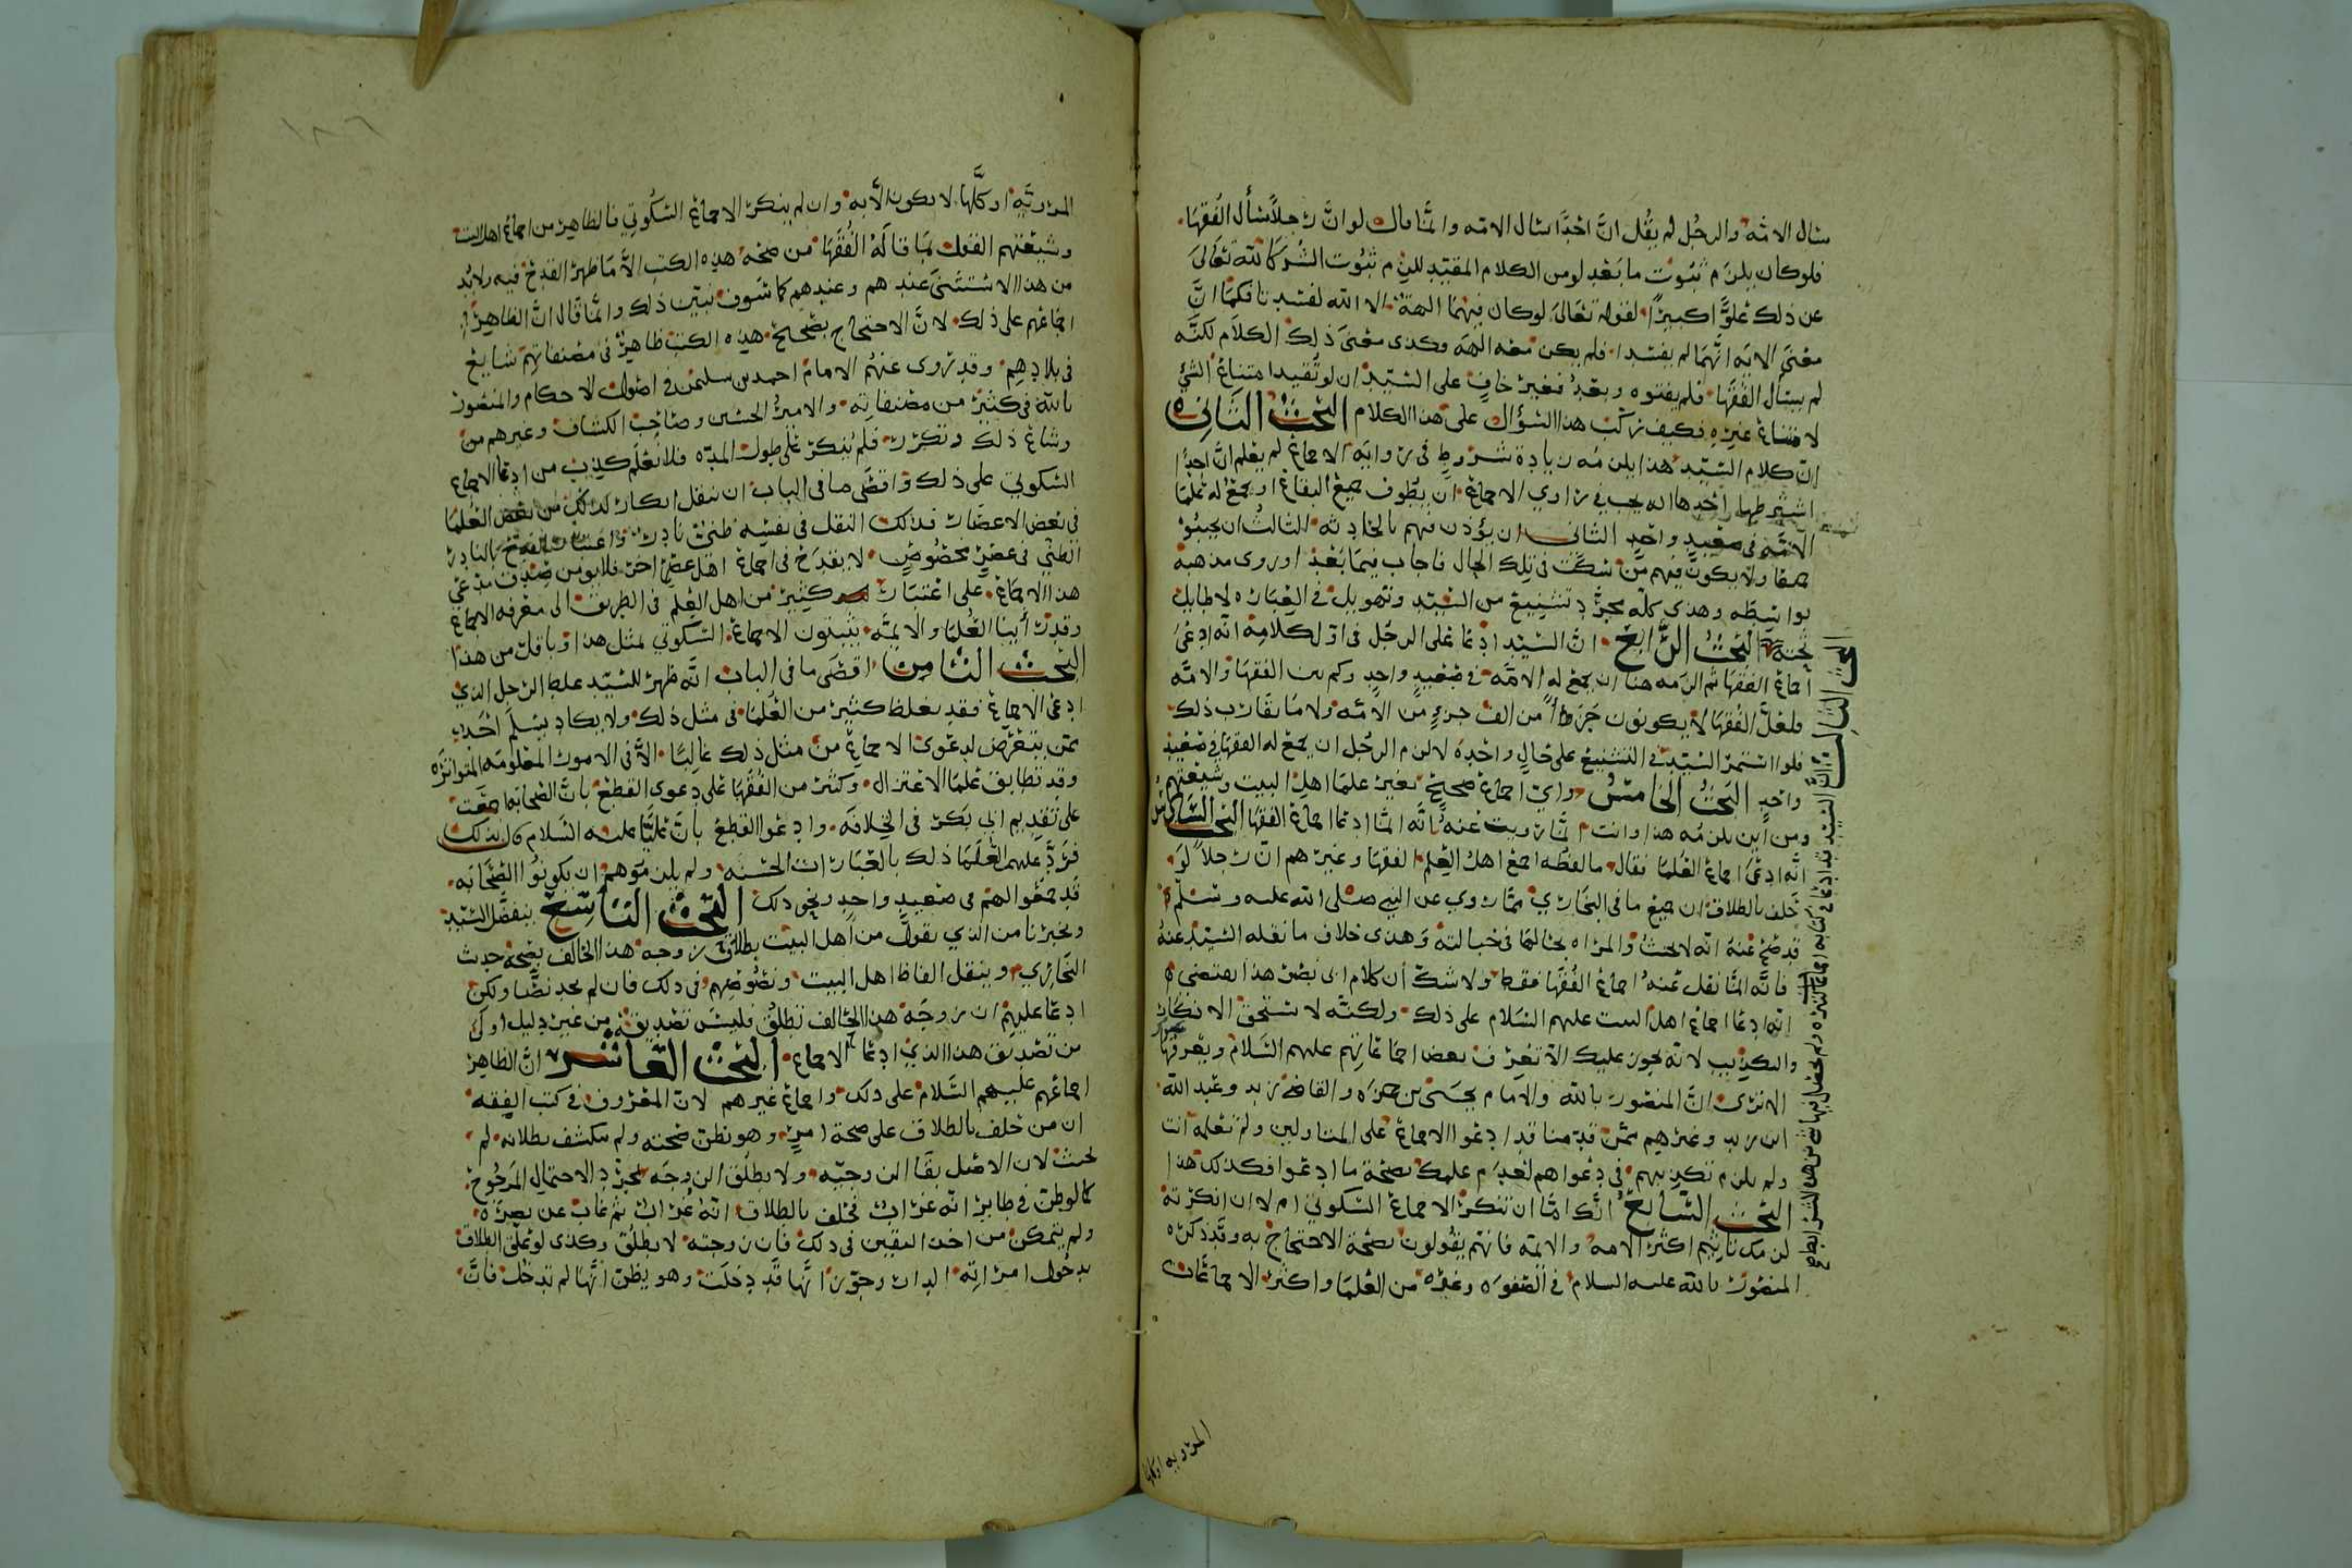 سال الامه والرجل لم يقل ان احدا سال الامه وانما قال لو ان رجلا سأل الفقها
فلو كان يلزم ثبوت ما بعد لو من الكلام المقيد للزم ثبوت الشركا لله تعالى
عن ذلك علوا كبيرا لقوله تعالى لو كان فيهما الهة الا الله لفسدتا فكما ان
معنى الايه انهما لم يفسدا فلم يكن معه الهه وكذى معنى ذلك الكلام لكنه
لم يسأل الفقها فلم يفتوه وبعد فغير خاف على السيد ان لو تفيد امتناع الشي
لامتناع غيره فكيف ركب هذا السؤال على هذا الكلام البحث الثاني
ان كلام السيد هذا يلزمه زيادة شروط في رواية الاجماع لم يعلم ان احدا
اشترطها احدها انه يجب في راوي الاجماع ان يطوف جميع البقاع او يجمع له علما
الامه في صعيد واحد الثاني ان يؤذن فيهم بالحادثه الثالث ان يجيبوا
جميعا ولا يكون فيهم من سكت في تلك الحال فاجاب فيما بعد او روى مذهبه
بواسطه وهذى كله مجرد تشنيع من السيد وتهويل في العباره لا طايل
تحته البحث الرابع ان السيد ادعا على الرجل في اول كلامه انه ادعى
اجماع الفقها ثم الزمه هنا ان يجمع له الامه في صعيد واحد وكم بين الفقها والامه
فلعل الفقها لا يكونون جزءا من الف جزء من الامه ولا ما يقارب ذلك
فلو استمر السيد في التشنيع على حال واحده لالزم الرجل ان يجمع له الفقها في صعيد
واحد البحث الخامس واي اجماع صحيح بغير علما اهل البيت وشيعتهم
ومن اين يلزمه هذا وانت انما رويت عنه بانه انما ادعا اجماع الفقها البحث السادس
انه ادعى اجماع العلما فقال ما لفظه اجمع اهل العلم الفقها وغيرهم ان رجلا لو
حلف بالطلاق ان جميع ما في البخاري مما روي عن النبي صلى الله عليه وسلم
قد صح عنه انه لا يحنث والمراه بحالها في حبالته وهذى خلاف ما نقله السيد عنه
فانه انما نقل عنه اجماع الفقها فقط ولا شك ان كلام ابي نصر هذا يقتضي
انه ادعا اجماع اهل البيت عليهم السلام على ذلك ولكنه لا يستحق الانكار
والتكذيب لانه يجوز عليك الا تعرف بعض اجماعاتهم عليهم السلام ويعرفها
الا ترى ان المنصور بالله والامام يحيى بن حمزه والقاضي زيد وعبد الله
ابن زيد وغيرهم ممن قدمنا قد ادعوا الاجماع على المتاولين ولم تعلمه انت
ولم يلزم تكذيبهم في دعواهم لعدم علمك بصحة ما ادعوا فكذلك هذا
البحث السابع انك اما ان تنكر الاجماع السكوتي ام لا ان انكرته
لزمك تاثيم اكثر الامه والايمه فانهم يقولون بصحة الاحتجاج به وقد ذكره
المنصور بالله عليه السلام في الصفوه وغيره من العلما واكثر الاجماعات
المرويه او كلها
البحث الثالث ان السيد قد ادعا في كتابه اجماعات كثيره ولم يحصل فيها شي من هذه الشرايط
١٨٦
المرويه او كلها لا يكون الا به وان لم ينكر الاجماع السكوتي فالظاهر من اجماع اهل البيت
وشيعتهم القول بما قاله الفقها من صحة هذه الكتب الا ما ظهر القدح فيه ولا بد
من هذا الاستثنى عندهم وعندهم كما سوف نبين ذلك وانما قال ان الظاهر
اجماعهم على ذلك لان الاحتجاج بصحيح هذه الكتب ظاهر في مصنفاتهم شايع
في بلادهم وقد روى عنهم الامام احمد بن سليمن في اصول الاحكام والمنصور
بالله في كثير من مصنفاته والامير الحسين وصاحب الكشاف وغيرهم من
وشاع ذلك وتكرر فلم ينكر على طول المده فلا نعلم كذب من ادعا الاجماع
السكوتي على ذلك واقصى ما في الباب ان ننقل انكار لذلك من بعض العلما
في بعض الاعصار فذلك النقل في نفسه ظني نادر واعتبار القدح بالنادر
الظني في عصر مخصوص لا يقدح في اجماع اهل عصر اخر فلا يومن صدق مدعي
هذا الاجماع على اعتبار كثير من اهل العلم في الطريق الى معرفه الاجماع
وقد راينا العلما والايمه يثبتون الاجماع السكوتي لمثل هذا وباقل من هذا
البحث الثامن اقصى ما في الباب انه ظهر للسيد غلط الرجل الذي
ادعى الاجماع فقد يغلط كثير من العلما في مثل ذلك ولا يكاد يسلم احد
ممن يتعرض لدعوى الاجماع من مثل ذلك غالبا الا في الامور المعلومه المتواتره
وقد تطابق علما الاعتزال وكثير من الفقها على دعوى القطع بان الصحابه اجمعت
على تقديم ابي بكر في الخلافه وادعوا القطع بان عليا عليه السلام قال بذلك
فرد عليهم العلما ذلك بالعبارات الحسنه ولم يلزموهم ان يكونوا الصحابه
قد جمعوا لهم في صعيد واحد ونحو ذلك البحث التاسع يتفضل السيد
ويخبرنا من الذي يقول من اهل البيت بطلاق زوجه هذا الحالف بصحة حديث
البخاري وينقل الفاظ اهل البيت ونصوصهم في ذلك فان لم يجد نصا ولكن
ادعا عليهم ان زوجه هذا الحالف تطلق فليس تصديقه من غير دليل اولى
من تصديق هذا الذي ادعا الاجماع البحث العاشر ان الظاهر
اجماعهم عليهم السلام على ذلك واجماع غيرهم لان المعروف في كتب الفقه
ان من حلف بالطلاق على صحة امر وهو يظن صحته ولم ينكشف بطلانه لم
يحنث لان الاصل بقا الزوجيه ولا يطلق الزوجه بمجرد الاحتمال المرجوح
كما لو ظن في طاير انه غراب فحلف بالطلاق انه غراب ثم غاب عن بصره
ولم يتمكن من اخذ اليقين في ذلك فان زوجته لا تطلق وكذى لو علق الطلاق
بدخول امراته الدار وجوز انها قد دخلت وهو يظن انها لم تدخل فان